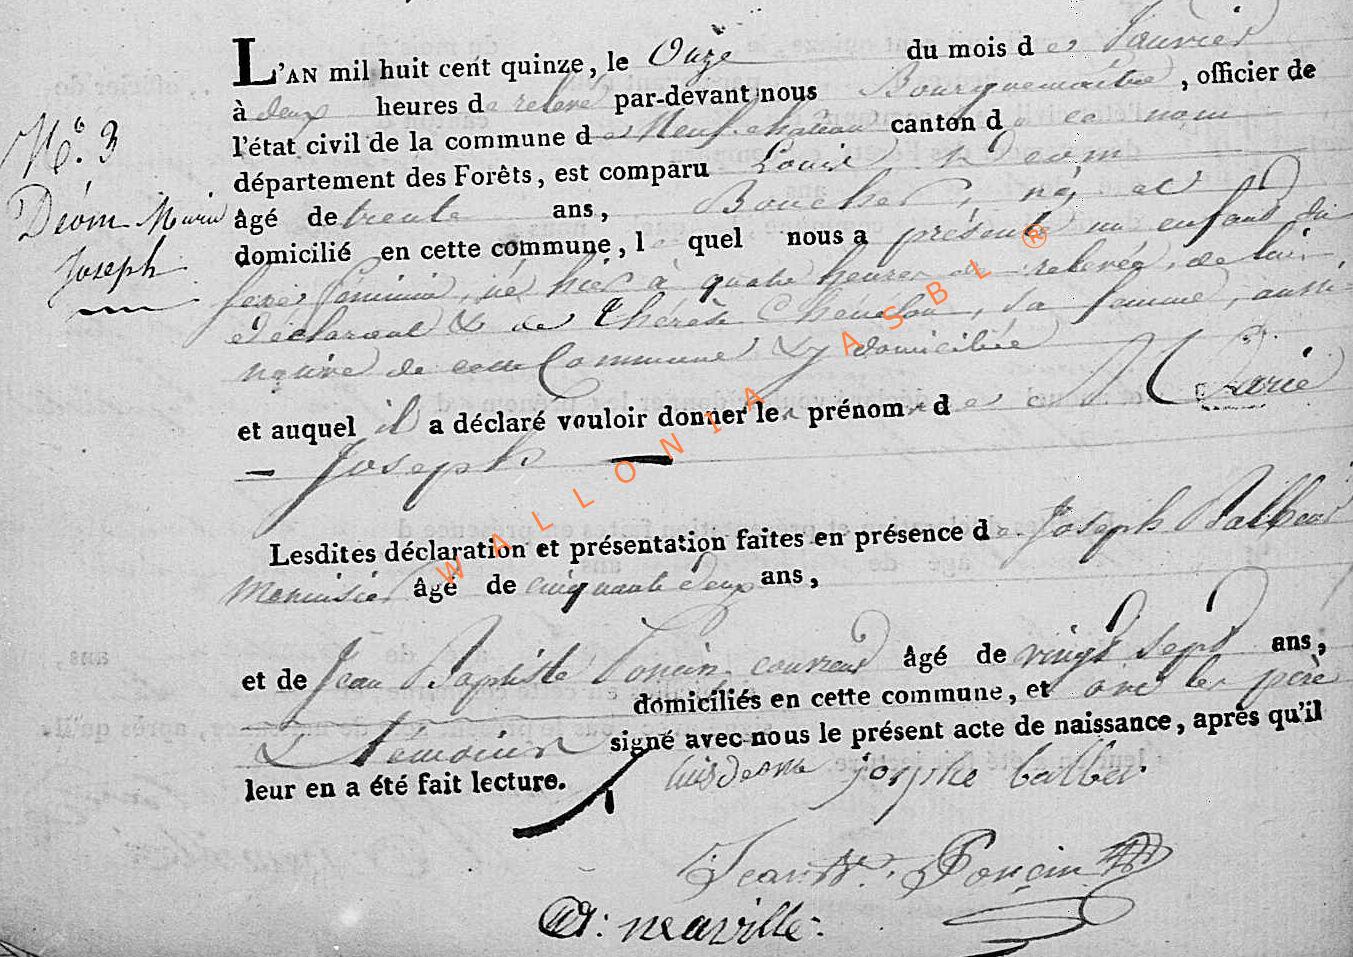 L'AN mil huit cent quinze, le Onze du mois de Janvier
à deux heures de relevé par-devant nous Bourguemaitre, officier de
l'état civil de la commune de Neufchateau canton de ce nom
N.º 3
département des Forêts, est comparu Louis Déom
Déom Marie Joseph
âgé de trente ans, Boucher, né, et
domicilié en cette commune, lequel nous a présenté un enfant du
sexe feminin, né hier à quatre heures de relevée, de lui,
déclarant & de Thérèse, sa femme, aussi
native de cette Commune & y domiciliée
et auquel il a déclaré vouloir donner les prénom de Marie
— Joseph —
Lesdites déclaration et présentation faites en présence de Joseph Balbeur
Menuisier âgé de cinquante deux ans,
et de Jean Baptiste Poncin couvreur âgé de vingt sept ans,
domiciliés en cette commune, et ont les père
& temoins signé avec nous le présent acte de naissance, après qu'il
leur en a été fait lecture.
josphe balber
Jean Bte. Poncin
neuville
WALLONIA ASBL ®